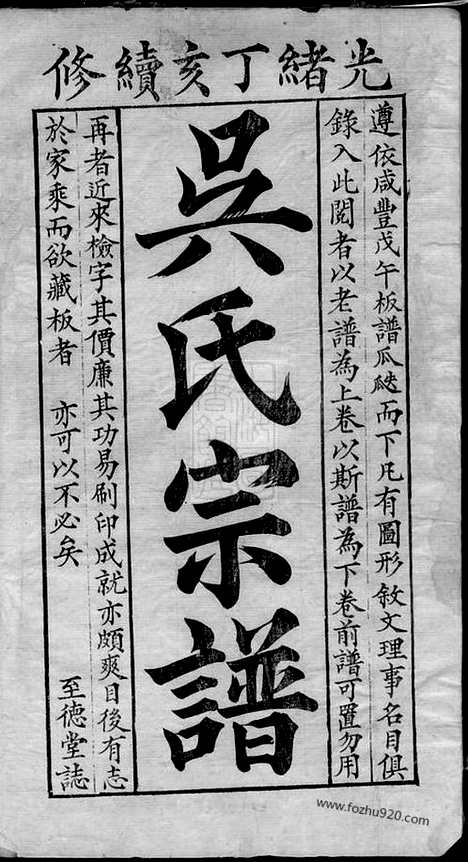 光緒丁亥續修
遵依咸豐戊午板譜瓜瓞而下凡有圖形敘文理事名目俱
錄入此閱者以老譜為上卷以斯譜為下卷前譜可置勿用
吳氏宗譜
再者近來檢字其價廉其功易刷印成就亦頗爽目後有志
於家乘而欲藏板者 亦可以不必矣 至德堂誌
www.fozhu920.com